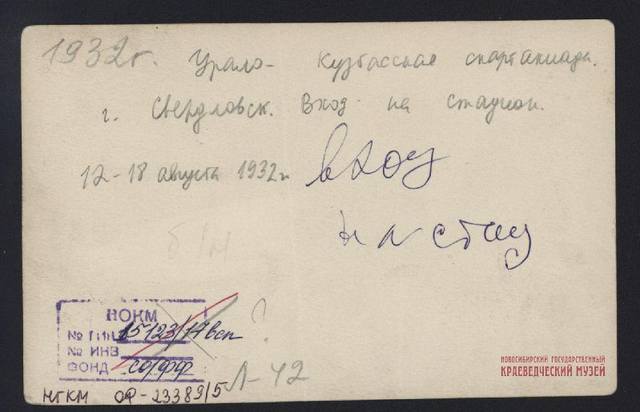 1932г. Урало- Кузбасская спартакиада.
г. Свердловск. Вход на стадион.
12-18 августа 1932г.
вход
на стад
б/н
НОКМ
№ ГИК 15123/17 всп
№ ИНВ
ФОНД со/фф
?
Л-42
НГКМ ОФ-23389/5
НОВОСИБИРСКИЙ ГОСУДАРСТВЕННЫЙ
КРАЕВЕДЧЕСКИЙ МУЗЕЙ